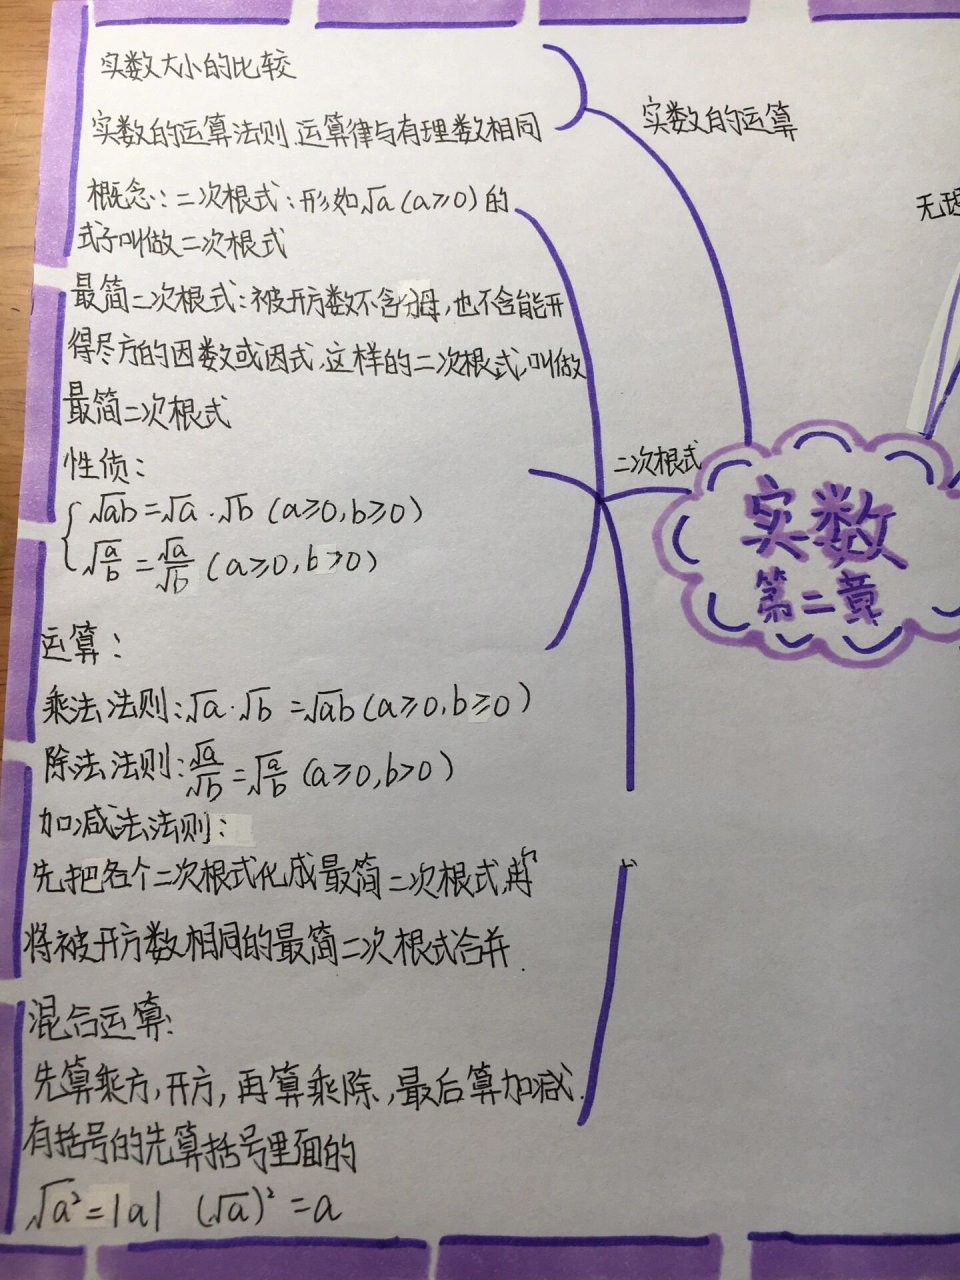 实数大小的比较
实数的运算法则、运算律与有理数相同
实数的运算
概念:二次根式:形如√a(a≥0)的
式子叫做二次根式
最简二次根式:被开方数不含分母,也不含能开
得尽方的因数或因式,这样的二次根式,叫做
最简二次根式
二次根式
性侦:
√ab=√a·√b (a≥0,b≥0)
√(a/b)=√a/√b (a≥0,b>0)
运算:
乘法法则:√a·√b=√ab(a≥0,b≥0)
除法法则:√a/√b=√(a/b) (a≥0,b>0)
加减法法则:
先把各个二次根式化成最简二次根式,再
将被开方数相同的最简二次根式合并.
混合运算:
先算乘方,开方,再算乘除,最后算加减.
有括号的先算括号里面的
√a²=|a| (√a)²=a
实数
第二章
无理